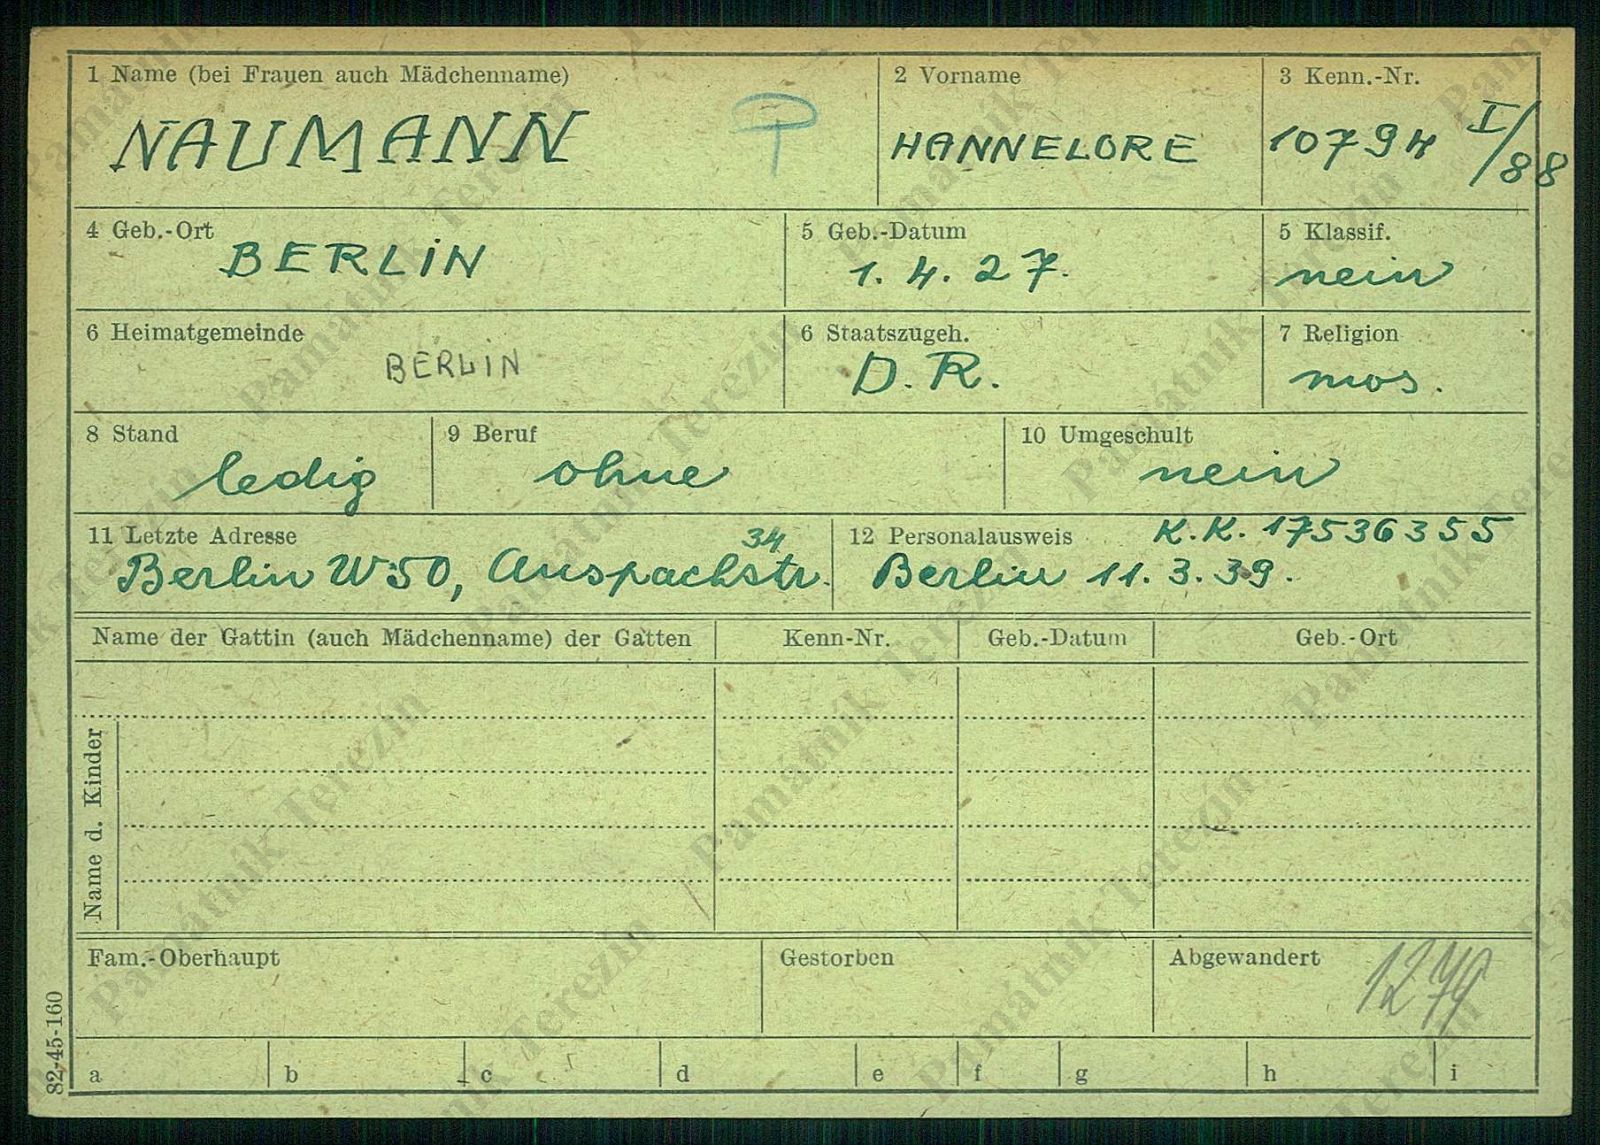 1 Name (bei Frauen auch Mädchenname)
NAUMANN
2 Vorname
HANNELORE
3 Kenn.-Nr.
10794 I/88
4 Geb.-Ort
BERLIN
5 Geb.-Datum
1. 4. 27.
5 Klassif.
nein
6 Heimatgemeinde
BERLIN
6 Staatszugeh.
D. R.
7 Religion
mos.
8 Stand
ledig
9 Beruf
ohne
10 Umgeschult
nein
11 Letzte Adresse
34
Berlin W50, Anspachstr.
12 Personalausweis K.K. 17536355
Berlin 11. 3. 39.
Name der Gattin (auch Mädchenname) der Gatten
Kenn-Nr.
Geb.-Datum
Geb.-Ort
Name d. Kinder
Fam.-Oberhaupt
Gestorben
Abgewandert
1279
a b c d e f g h i
82-45-160
Památník Terezín